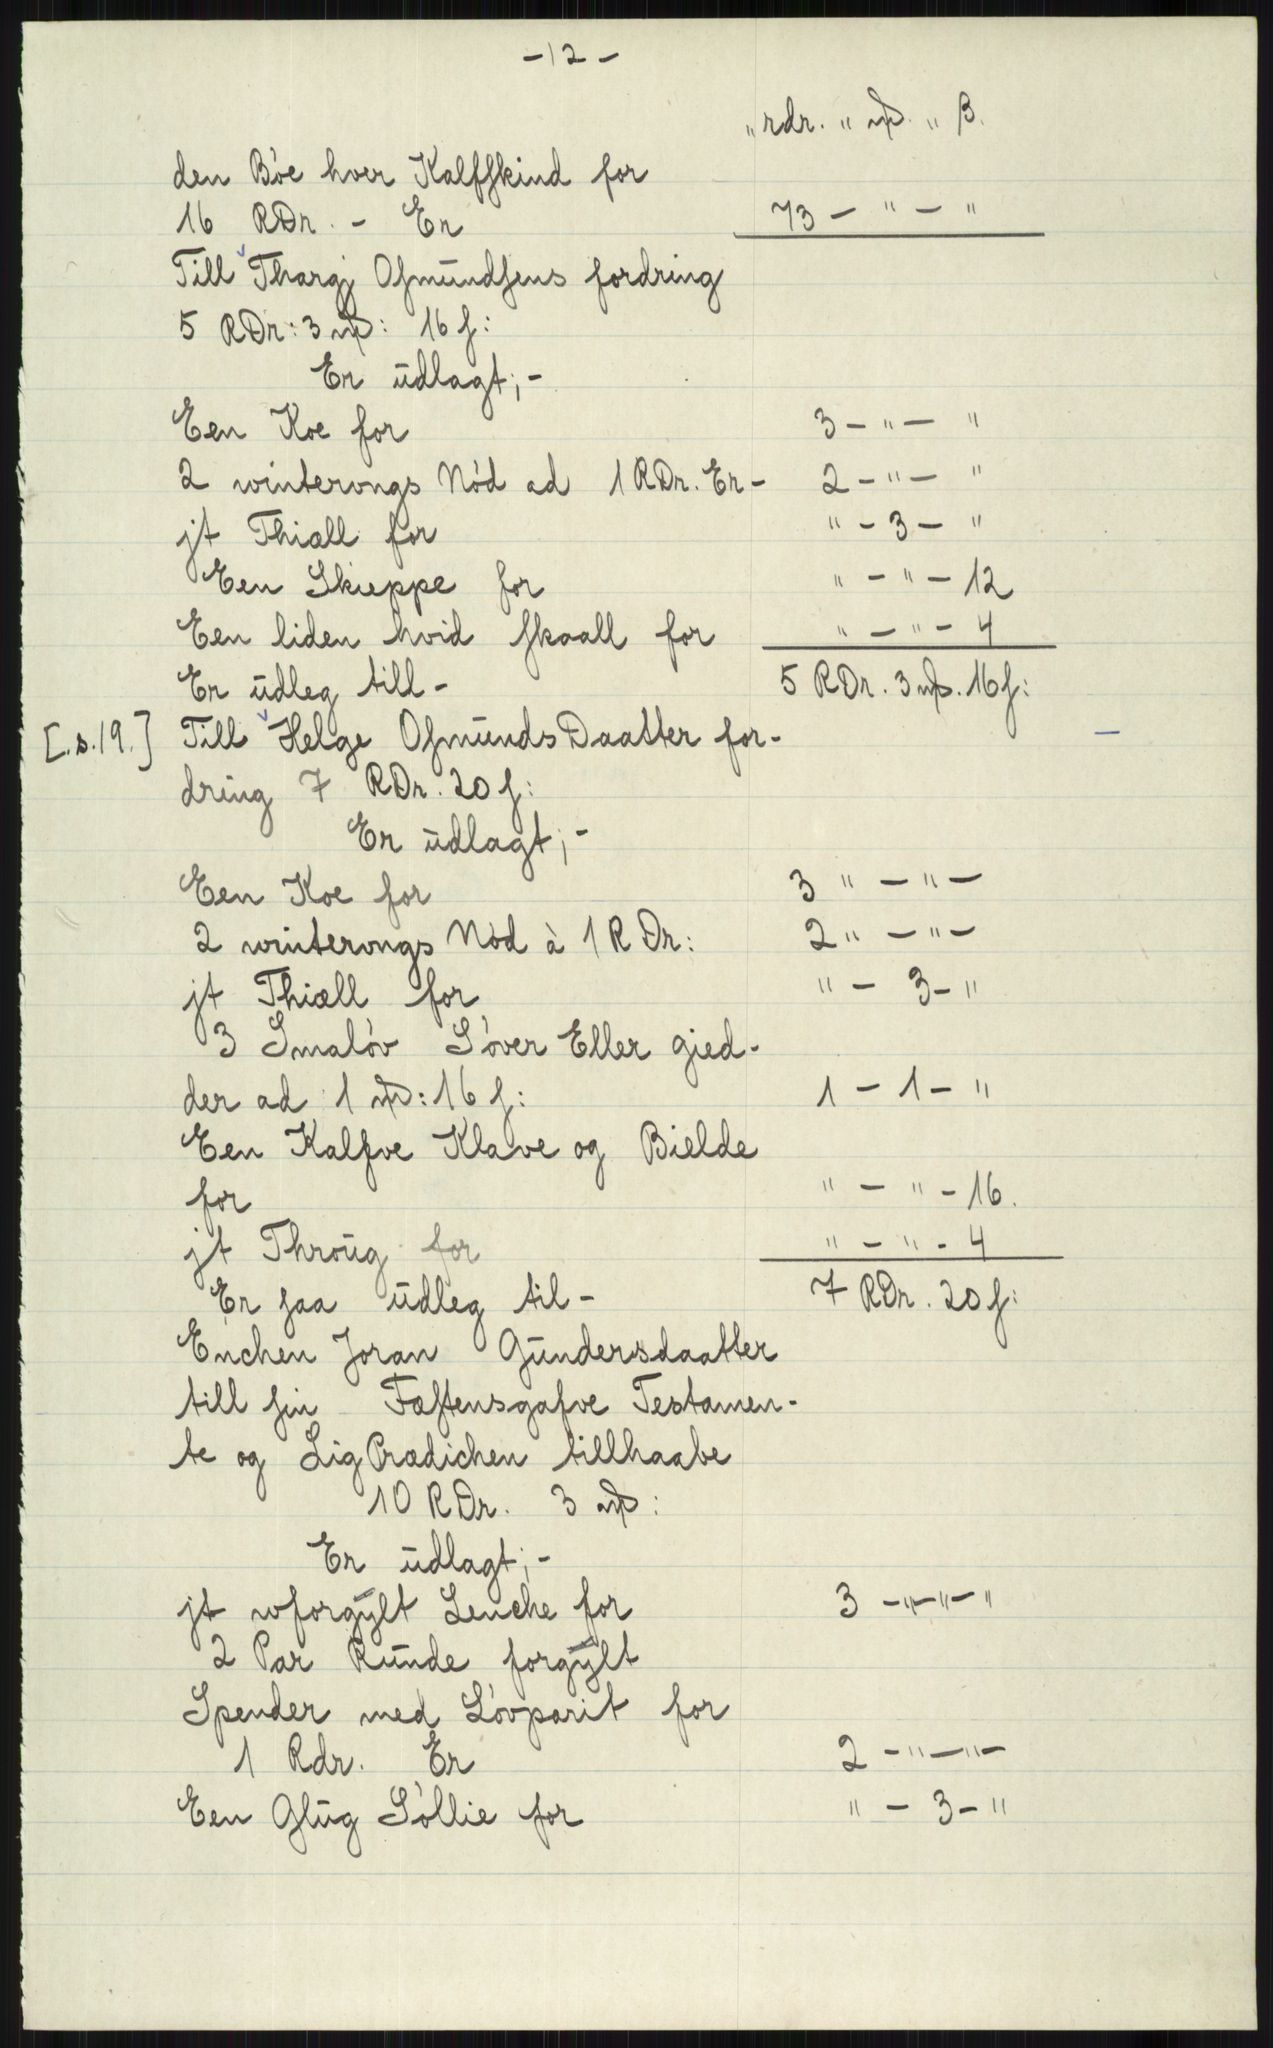 -12-
„ rdr. „ mƿ. „ β.
den Bóe hver Kalfſkind for
16 RDr. - Er 73 - " - "
Till Thargj Oſmundſens fordring
5 RDr: 3 mƿ: 16 ſ:
Er udlagt; -
Een Koe for 3 - " - "
2 winterongs Nód ad 1 RDr. Er - 2 - " - "
jt Thiæll for " - 3 - "
Een Skieppe for " - " - 12
Een liden hvid ſkaall for " - " - 4
Er udleg till - 5 RDr. 3 mƿ. 16 ſ:
[s.19.] Till Helge Oſmunds Daatter for-
dring 7 RDr. 20 ſ:
Er udlagt; -
Een Koe for 3 " - " -
2 winterongs Nód à 1 RDr: 2 " - " -
jt Thiæll for " - 3 - "
3 Smalóv Sóver Eller gied-
der ad 1 mƿ: 16 ſ: 1 - 1 - "
Een Kalfve Klave og Bielde
for " - " - 16.
jt Throug for " - " - 4
Er ſaa udleg til - 7 RDr. 20 ſ:
Enchen Joran Gundersdaatter
till ſin Fæſtensgafve Testamen-
te og Lig Prædichen tillhaabe
10 RDr. 3 mƿ:
Er udlagt; -
jt wforgylt Lenche for 3 - " - " - "
2 Par Runde forgylt
Spender med Sóvparit for
1 Rdr. Er 2 - " - " -
Een Glug Sóllie for " - 3 - "